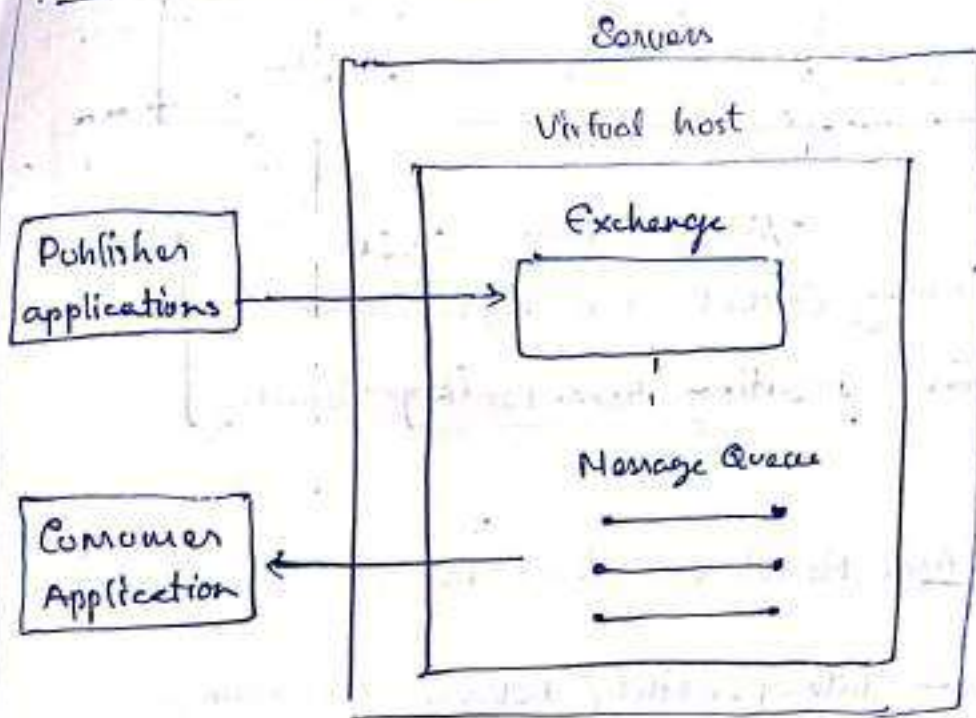 Servers
Virtual host
Exchange
Publisher
applications
Message Queue
Consumer
Application